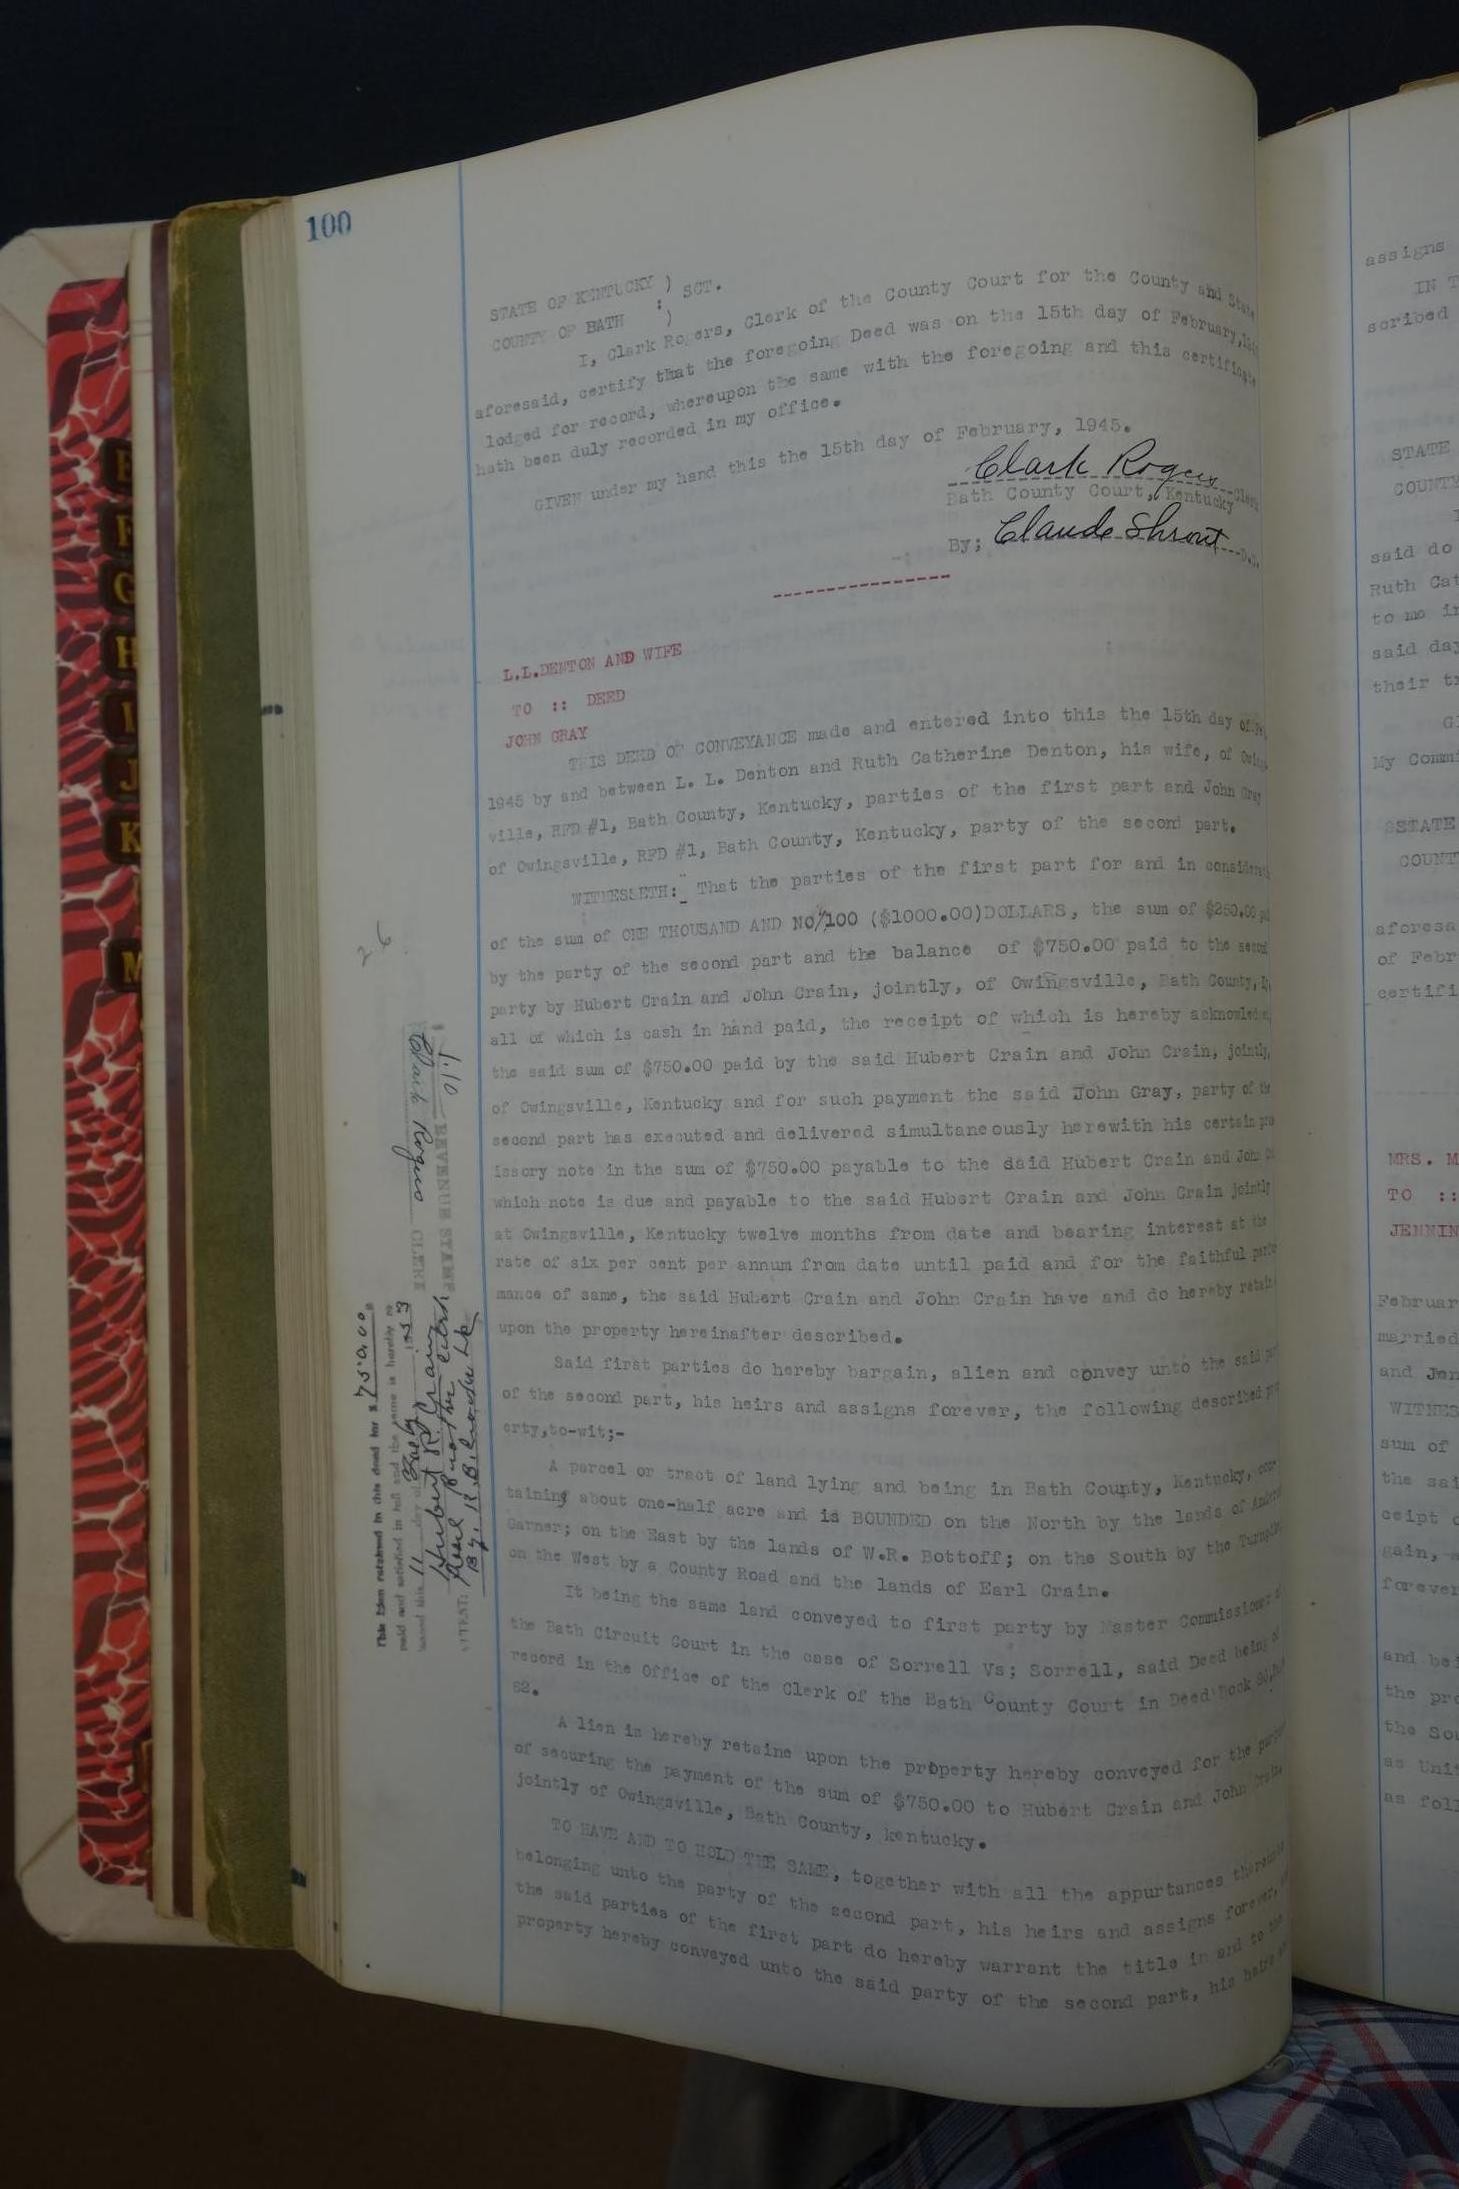 100
STATE OF KENTUCKY )
: SCT.
COUNTY OF BATH )
I, Clark Rogers, Clerk of the County Court for the County and State
aforesaid, certify that the foregoing Deed was on the 15th day of February,
lodged for record, whereupon the same with the foregoing and this certificate
hath been duly recorded in my office.
GIVEN under my hand this the 15th day of February, 1945.
Clark Rogers Clerk
Bath County Court, Kentucky
By; Claude Shrout D.C.
L.L.DENTON AND WIFE
TO :: DEED
JOHN GRAY
THIS DEED OF CONVEYANCE made and entered into this the 15th day of
1945 by and between L. L. Denton and Ruth Catherine Denton, his wife, of Owings
ville, RFD #1, Bath County, Kentucky, parties of the first part and John Gray
of Owingsville, RFD #1, Bath County, Kentucky, party of the second part.
WITNESSETH: That the parties of the first part for and in considerati
of the sum of ONE THOUSAND AND NO/100 ($1000.00)DOLLARS, the sum of $250.00
by the party of the second part and the balance of $750.00 paid to the second
party by Hubert Crain and John Crain, jointly, of Owingsville, Bath County,
all of which is cash in hand paid, the receipt of which is hereby acknowledged,
the said sum of $750.00 paid by the said Hubert Crain and John Crain, jointly,
of Owingsville, Kentucky and for such payment the said John Gray, party of the
second part has executed and delivered simultaneously herewith his certain pro
issory note in the sum of $750.00 payable to the said Hubert Crain and John
which note is due and payable to the said Hubert Crain and John Crain jointly
at Owingsville, Kentucky twelve months from date and bearing interest at the
rate of six per cent per annum from date until paid and for the faithful perfo
mance of same, the said Hubert Crain and John Crain have and do hereby retain
upon the property hereinafter described.
Said first parties do hereby bargain, alien and convey unto the said
of the second part, his heirs and assigns forever, the following described
erty,to-wit;-
A parcel or tract of land lying and being in Bath County, Kentucky, con
taining about one-half acre and is BOUNDED on the North by the lands of
Garner; on the East by the lands of W.R. Bottoff; on the South by the
on the West by a County Road and the lands of Earl Crain.
It being the same land conveyed to first party by Master Commissioner
the Bath Circuit Court in the case of Sorrell Vs; Sorrell, said Deed being of
record in the Office of the Clerk of the Bath County Court in Deed Book
A lien is hereby retaine upon the property hereby conveyed for the
of securing the payment of the sum of $750.00 to Hubert Crain and John Crain,
jointly of Owingsville, Bath County, kentucky.
TO HAVE AND TO HOLD THE SAME, together with all the appurtances
belonging unto the party of the second part, his heirs and assigns forever,
the said parties of the first part do hereby warrant the title in and to the
property hereby conveyed unto the said party of the second part, his heirs
1.10 REVENUE STAMP
Clark Rogers CLERK
The lien retained in this deed for $ 750.00
paid and satisfied in full and the same is hereby re
leased this 11 day of 1953
Hubert R. Crain
ATTEST:
assigns
IN T
scribed
STATE
COUNTY
I
said do
Ruth Cat
to me in
said day
their tr
G
My Commi
SSTATE
COUNT
aforesa
of Febr
certifi
MRS. M
TO ::
JENNIN
Februar
married
and Jen
WITNES
sum of
the sai
ceipt o
gain,
forever
and bei
the pro
the Sou
as Uni
as foll